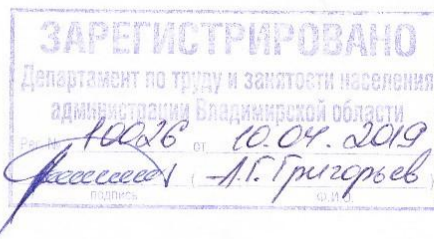 ЗАРЕГИСТРИРОВАНО
Департамент по труду и занятости населения
администрации Владимирской области
Рег. № 10026 от 10.04.2019
( А.Г. Григорьев )
подпись Ф.И.О.